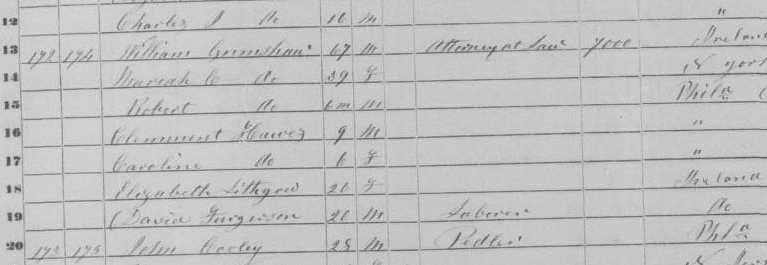 12 Charles J do 16 M "
13 172 174 William Grimshaw 67 M Attorney at Law 7000 Ireland
14 Mariah C do 39 F N York
15 Robert do 6m M Phila
16 Clemment Hawes 9 M "
17 Caroline do 6 F "
18 Elizabeth Lithgow 20 F Ireland
19 David Furgerson 20 M Laborer do
20 175 John Cooley 28 M Pedler Phila